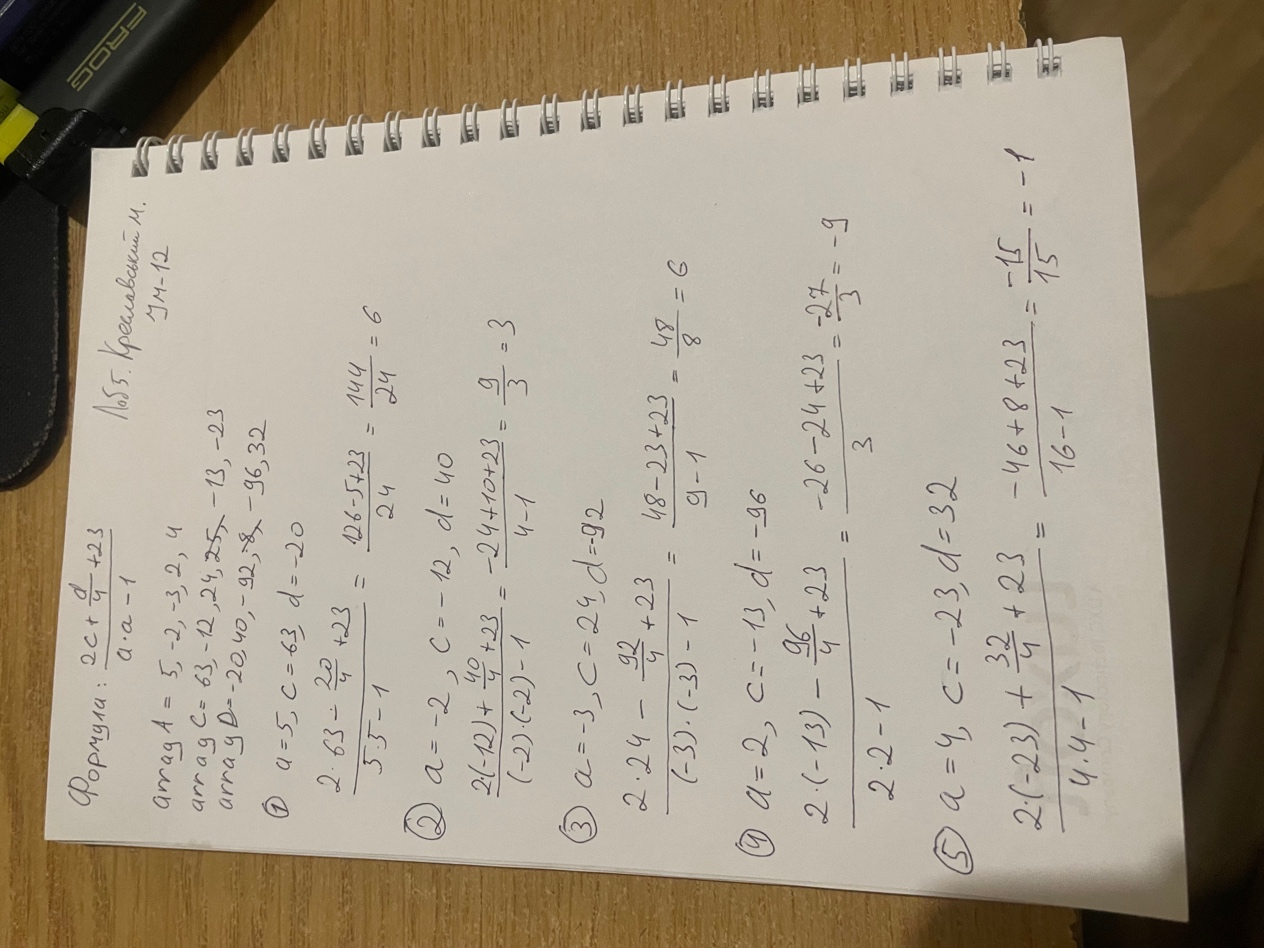 Лаб5. Креславський М.
ІМ-12
Формула: (2c + d/4 + 23) / (a·a - 1)
array A = 5, -2, -3, 2, 4
array C = 63, -12, 24, 25, -13, -23
array D = -20, 40, -92, -8, -96, 32
① a = 5, c = 63, d = -20
(2·63 - 20/4 + 23) / (5·5 - 1) = (126-5+23) / 24 = 144/24 = 6
② a = -2, c = -12, d = 40
(2(-12) + 40/4 + 23) / ((-2)·(-2) - 1) = (-24+10+23) / (4-1) = 9/3 = 3
③ a = -3, c = 24, d = -92
(2·24 - 92/4 + 23) / ((-3)·(-3) - 1) = (48-23+23) / (9-1) = 48/8 = 6
④ a = 2, c = -13, d = -96
(2·(-13) - 96/4 + 23) / (2·2-1) = (-26-24+23) / 3 = -27/3 = -9
⑤ a = 4, c = -23, d = 32
(2·(-23) + 32/4 + 23) / (4·4-1) = (-46+8+23) / (16-1) = -15/15 = -1
FROG